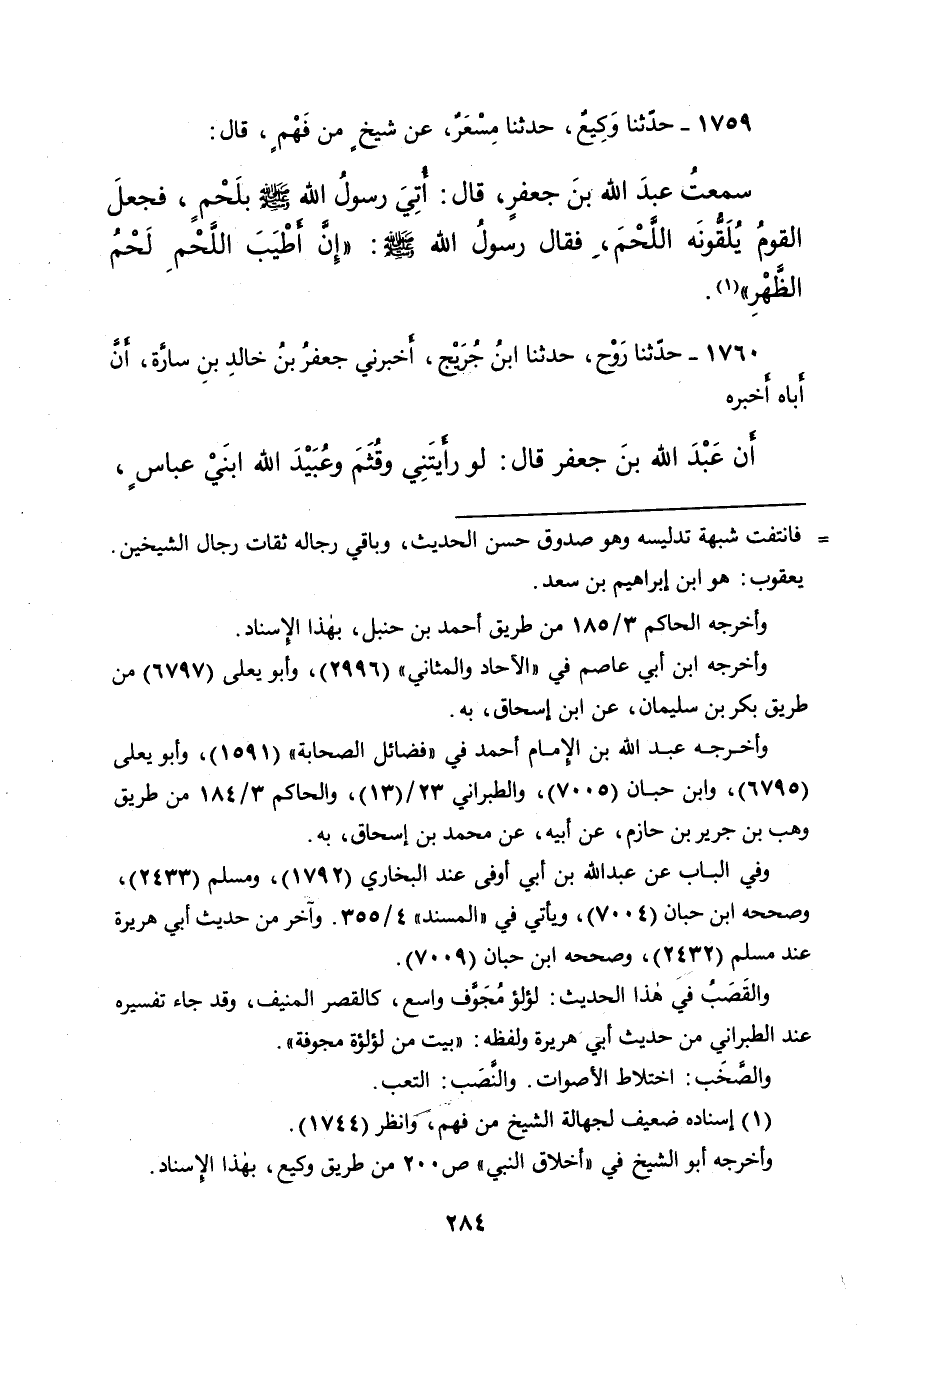 ١٧٥٩ ـ حدّثنا وَكِيعٌ، حدثنا مِسْعَرٌ، عن شيخٍ من فَهْمٍ، قال:
سمعتُ عبدَ الله بنَ جعفرٍ، قال: أُتِيَ رسولُ الله ﷺ بلَحْمٍ، فجعلَ
القومُ يُلَقُّونَه اللَّحْمَ، فقال رسولُ الله ﷺ: «إِنَّ أَطْيَبَ اللَّحْمِ لَحْمُ
الظَّهْرِ»(١).
١٧٦٠ ـ حدّثنا رَوْح، حدثنا ابنُ جُرَيْج، أَخبرني جعفرُ بنُ خالدِ بنِ سارَّة، أَنَّ
أَباه أَخبره
أَن عَبْدَ الله بنَ جعفر قال: لو رأَيتَنِي وقُثَمَ وعُبَيْدَ الله ابنَيْ عباسٍ،
= فانتفت شبهة تدليسه وهو صدوق حسن الحديث، وباقي رجاله ثقات رجال الشيخين.
يعقوب: هو ابن إبراهيم بن سعد.
وأخرجه الحاكم ١٨٥/٣ من طريق أحمد بن حنبل، بهٰذا الإسناد.
وأخرجه ابن أبي عاصم في «الآحاد والمثاني» (٢٩٩٦)، وأبو يعلى (٦٧٩٧) من
طريق بكر بن سليمان، عن ابن إسحاق، به.
وأخرجه عبد الله بن الإمام أحمد في «فضائل الصحابة» (١٥٩١)، وأبو يعلى
(٦٧٩٥)، وابن حبان (٧٠٠٥)، والطبراني ٢٣/(١٣)، والحاكم ١٨٤/٣ من طريق
وهب بن جرير بن حازم، عن أبيه، عن محمد بن إسحاق، به.
وفي الباب عن عبدالله بن أبي أوفى عند البخاري (١٧٩٢)، ومسلم (٢٤٣٣)،
وصححه ابن حبان (٧٠٠٤)، ويأتي في «المسند» ٣٥٥/٤. وآخر من حديث أبي هريرة
عند مسلم (٢٤٣٢)، وصححه ابن حبان (٧٠٠٩).
والقَصَبُ في هٰذا الحديث: لؤلؤ مُجَوَّف واسع، كالقصر المنيف، وقد جاء تفسيره
عند الطبراني من حديث أبي هريرة ولفظه: «بيت من لؤلؤة مجوفة».
والصَّخَب: اختلاط الأصوات. والنَّصَب: التعب.
(١) إسناده ضعيف لجهالة الشيخ من فهم، وانظر (١٧٤٤).
وأخرجه أبو الشيخ في «أخلاق النبي» ص٢٠٠ من طريق وكيع، بهٰذا الإسناد.
٢٨٤